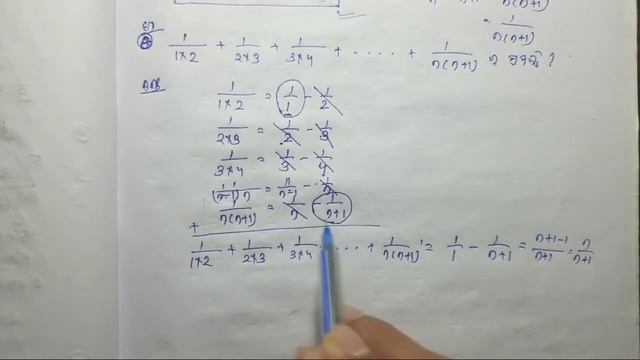 n(n+1)
= 1/n(n+1)
1/1×2 + 1/2×3 + 1/3×4 + ..... + 1/n(n+1)
1/1×2 = 1/1 - 1/2
1/2×3 = 1/2 - 1/3
1/3×4 = 1/3 - 1/4
1/(n-1)n = 1/n-1 - 1/n
1/n(n+1) = 1/n - 1/n+1
+
1/1×2 + 1/2×3 + 1/3×4 ..... + 1/n(n+1) = 1/1 - 1/n+1 = n+1-1/n+1 = n/n+1